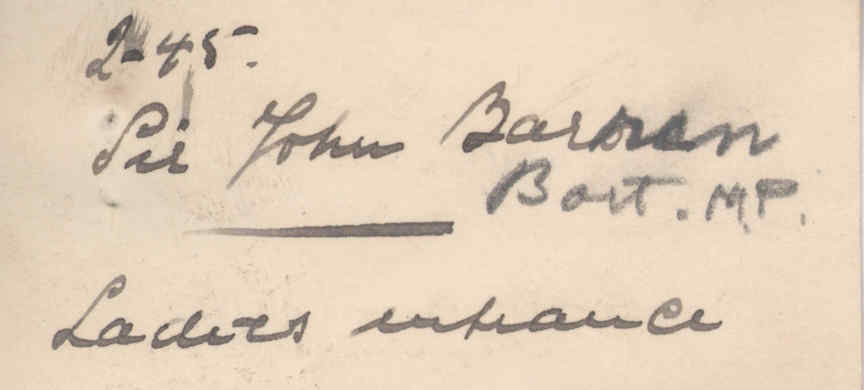 2-45.
Sir John Barren
Bart. M.P.
Ladies entrance